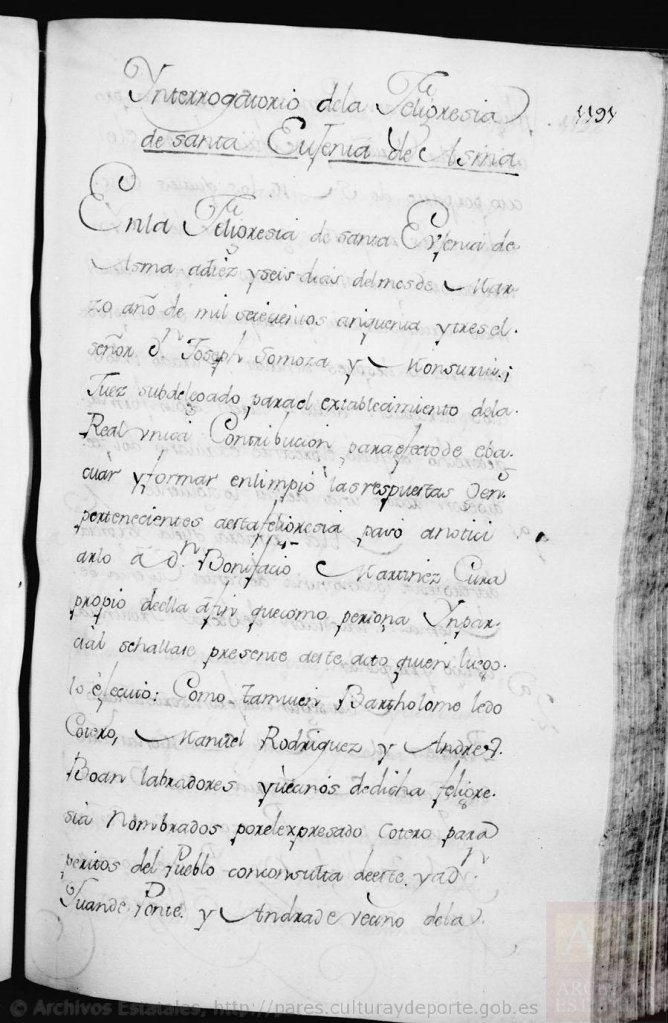 Ynterrogatorio dela Feligresia
1191
de santa Eufenia de Asma
En la Feligresia de santa Eufenia de
Asma adiez yseis dias delmesde Mar-
zo año de mil setecientos cinquenta ytres el
señor Dn Joseph Somoza y Monsuriu;
Juez subdelegado, parael extablecimiento dela
Real vnica Contribucion, paraefectode eba-
cuar yformar enlimpio las respuestas Gen.
pertenecientes aesta feligresia, pasó anotici
arlo á Dn Bonifacio Martinez Cura
propio deella áfin quecomo persona Ynpar-
cial sehallase presente aeste acto quien luego
lo ejecuto: Como tamvien Bartholome ledo
Cotero, Manuel Rodriguez y Andres
Boan labradores yvecinos dedicha feligre-
sia nombrados porelexpresado cotero para
peritos del Pueblo conconsulta deeste, yadn
Juande Ponte y Andrade vecino dela
© Archivos Estatales, http://pares.culturaydeporte.gob.es